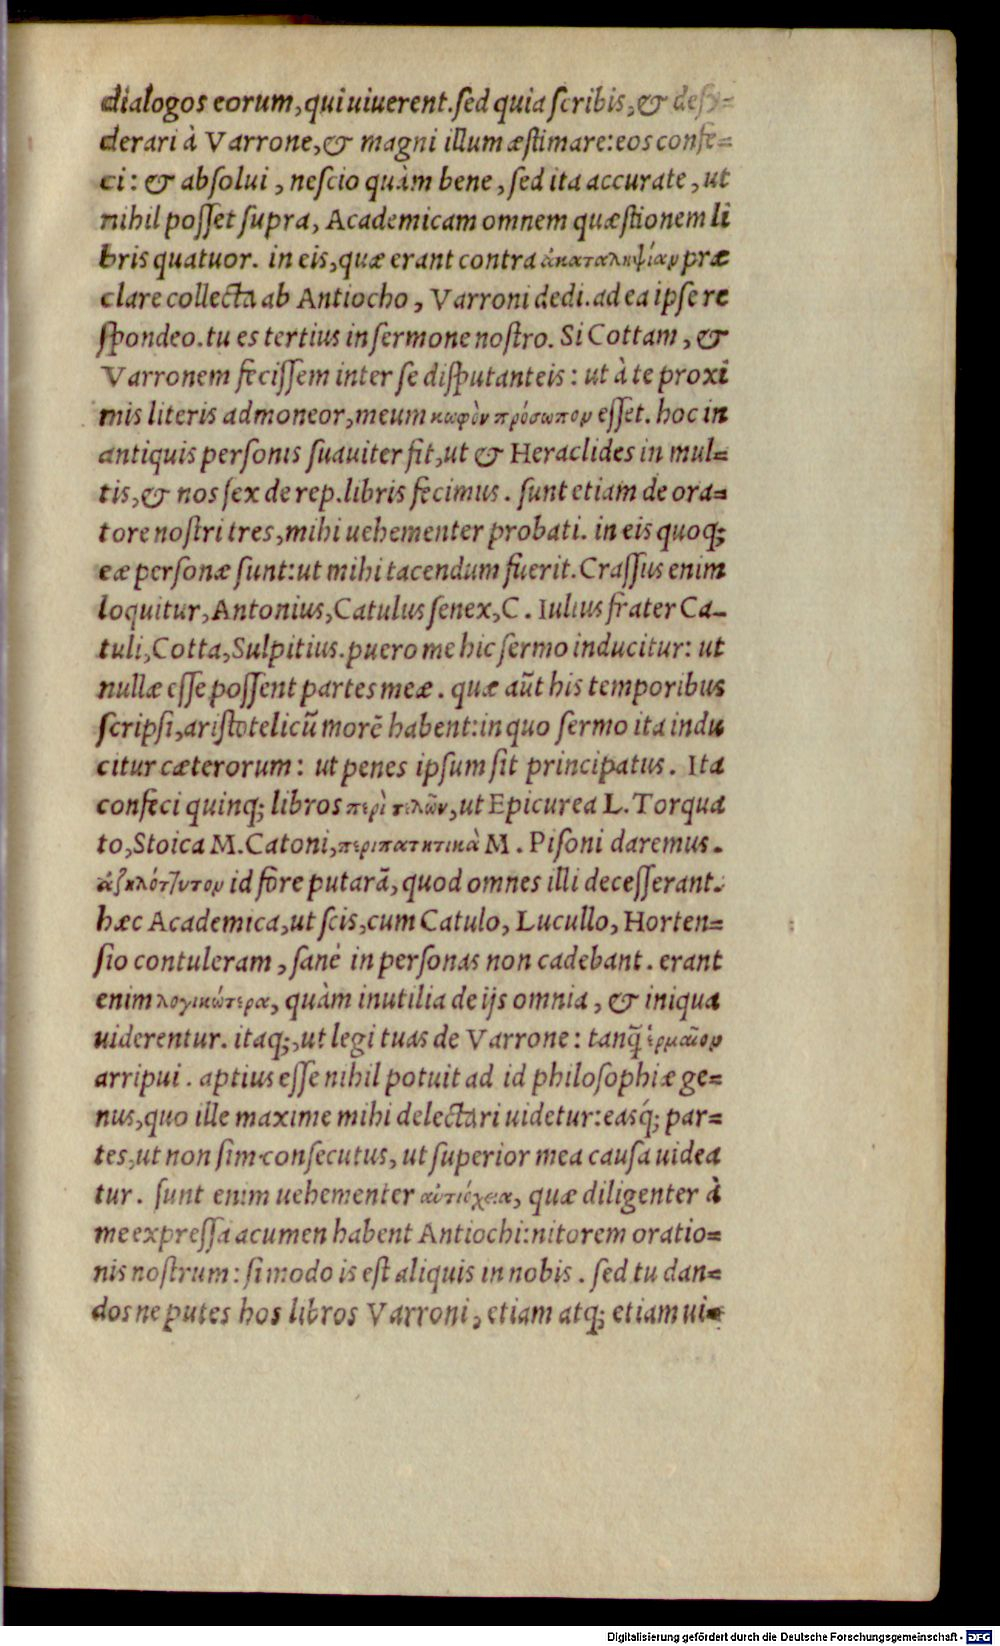 dialogos eorum, qui uiuerent. sed quia scribis, & desy=
derari à Varrone, & magni illum æstimare: eos confe=
ci: & absolui, nescio quàm bene, sed ita accurate, ut
nihil posset supra, Academicam omnem quæstionem li
bris quatuor. in eis, quæ erant contra ἀκαταληψίαν præ
clare collecta ab Antiocho, Varroni dedi. ad ea ipse re
spondeo. tu es tertius in sermone nostro. Si Cottam, &
Varronem fecissem inter se disputanteis: ut à te proxi
mis literis admoneor, meum κωφὸν πρόσωπον esset. hoc in
antiquis personis suauiter fit, ut & Heraclides in mul=
tis, & nos sex de rep. libris fecimus. sunt etiam de ora=
tore nostri tres, mihi uehementer probati. in eis quoq;
eæ personæ sunt: ut mihi tacendum fuerit. Crassus enim
loquitur, Antonius, Catulus senex, C. Iulius frater Ca-
tuli, Cotta, Sulpitius. puero me hic sermo inducitur: ut
nullæ esse possent partes meæ. quæ aūt his temporibus
scripsi, aristotelicū morē habent: in quo sermo ita indu
citur cæterorum: ut penes ipsum sit principatus. Ita
confeci quinq; libros περὶ τελῶν, ut Epicurea L. Torqua
to, Stoica M. Catoni, περιπατητικὰ M. Pisoni daremus.
ἀζηλότυπον id fore putarā, quod omnes illi decesserant.
hæc Academica, ut scis, cum Catulo, Lucullo, Horten=
sio contuleram, sane in personas non cadebant. erant
enim λογικώτερα, quàm inutilia de ijs omnia, & iniqua
uiderentur. itaq;, ut legi tuas de Varrone: tanq̄ ἑρμαῖον
arripui. aptius esse nihil potuit ad id philosophiæ ge=
nus, quo ille maxime mihi delectari uidetur: easq́; par=
tes, ut non sim consecutus, ut superior mea causa uidea
tur. sunt enim uehementer quæ diligenter à
me expressa acumen habent Antiochi: nitorem oratio=
nis nostrum: si modo is est aliquis in nobis. sed tu dan=
dos ne putes hos libros Varroni, etiam atq; etiam ui=
Digitalisierung gefördert durch die Deutsche Forschungsgemeinschaft - DFG